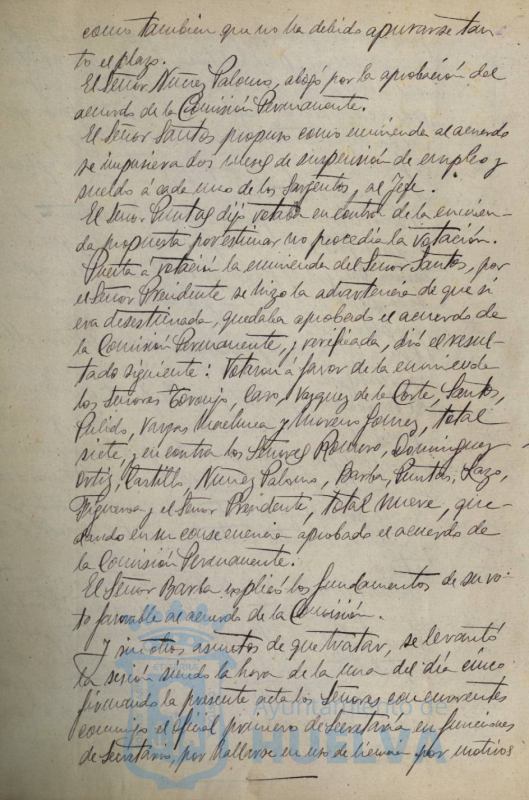 como tambien que no ha debido apurarse tan
to el plazo.
El Señor Nuñez Palomo, abogó por la aprobación del
acuerdo de la Comisión Permanente.
El Señor Santos propuso como enmienda al acuerdo
se impusiera dos meses de suspensión de empleo y
sueldo á cada uno de los Sargentos, al Jefe.
El Señor Puntas dijo votaba en contra de la enmien
da propuesta por estimar no procedía la votación.
Puesta á votación la enmienda del Señor Santos, por
el Señor Presidente se hizo la advertencia de que si
era desestimada, quedaba aprobado el acuerdo de
la Comisión Permanente, y verificada, dió el resul
tado siguiente: Votaron á favor de la enmienda
los Señores Toronjo, Caro, Vazquez de la Corte, Santos,
Pulido, Vargas Machuca y Moreno Gomez, total
siete, y en contra los Señores Romero, Dominguez
Ortiz, Castillo, Nuñez Palomo, Barba, Puntas, Lazo,
Figueroa y el Señor Presidente, total nueve, que-
dando en su consecuencia aprobado el acuerdo de
la Comisión Permanente.
El Señor Barba explicó los fundamentos de su vo-
to favorable al acuerdo de la Comisión.
Y sin otros asuntos de que tratar, se levantó
la sesión siendo la hora de la una del día cinco
firmando la presente acta los Señores concurrentes
conmigo el oficial primero de Secretaría en funciones
de Secretario, por hallarse en uso de licencia por motivos
Ayuntamiento de